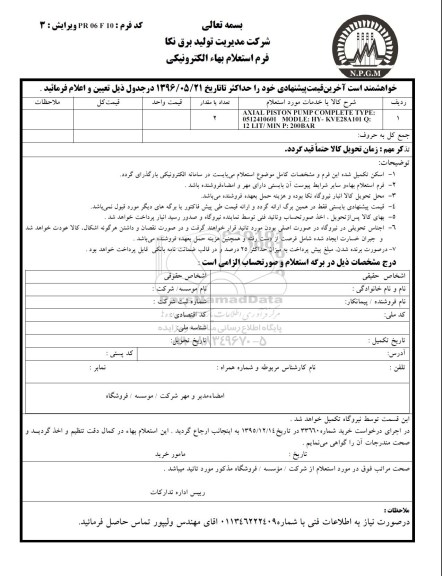 بسمه تعالی
شرکت مدیریت تولید برق نکا
فرم استعلام بهاء الکترونیکی
کد فرم : PR 06 F 10 ویرایش : ۳
N.P.G.M
خواهشمند است آخرین قیمت پیشنهادی خود را حداکثر تا تاریخ ۱۳۹۶/۰۵/۲۱ در جدول ذیل تعیین و اعلام فرمائید .
ردیف شرح کالا یا خدمات مورد استعلام تعداد یا مقدار قیمت واحد قیمت کل ملاحظات
۱ AXIAL PISTON PUMP COMPLETE TYPE: ۲
0512410601 MODLE: HY- KVE28A101 Q:
12 LIT/ MIN P: 200BAR
جمع کل به حروف:
تذکر مهم : زمان تحویل کالا حتماً قید گردد.
توضیحات:
۱- اسکن تکمیل شده این فرم و مشخصات کامل موضوع استعلام می‌بایست در سامانه الکترونیکی بارگذاری گردد.
۲- فرم استعلام بهاء و سایر شرایط پیوست آن بایستی دارای مهر و امضاء فروشنده باشد .
۳- محل تحویل کالا انبار نیروگاه نکا بوده و هزینه حمل بعهده فروشنده می‌باشد.
۴- قیمت پیشنهادی بایستی فقط در همین برگ ارائه گردد و ارائه قیمت طی پیش فاکتور یا برگه های دیگر مورد قبول نمی‌باشد.
۵- بهای کالا پس از تحویل ، اخذ صورتحساب و تائید فنی توسط نماینده نیروگاه و صدور رسید انبار پرداخت خواهد شد .
۶- اجناس تحویلی در نیروگاه در صورت اصلی بودن مورد تائید قرار خواهند گرفت و در صورت نقصان و داشتن هرگونه اشکال، کالا عودت خواهد شد
و جبران خسارت ایجاد شده شامل فرصت از دست رفته و همچنین هزینه حمل بعهده فروشنده می‌باشد .
۷- درصورت برنده شدن، مبلغ پیش پرداخت به میزان حداکثر ۲۵ درصد و در قالب ضمانت نامه بانکی قابل پرداخت خواهد بود .
درج مشخصات ذیل در برگه استعلام و صورتحساب الزامی است :
اشخاص حقیقی اشخاص حقوقی
نام و نام خانوادگی : نام موسسه/ شرکت :
نام فروشنده / پیمانکار: شماره ثبت شرکت :
کد ملی: کد اقتصادی :
شناسه ملی:
تاریخ تکمیل : تاریخ تحویل:
آدرس: کد پستی :
تلفن : نام کارشناس مربوطه و شماره همراه : نمابر :
امضاء مدیر و مهر شرکت / موسسه / فروشگاه
این قسمت توسط نیروگاه تکمیل خواهد شد .
در اجرای درخواست خرید شماره ۳۳۶۶۰ در تاریخ ۱۳۹۵/۱۲/۱۴ به اینجانب ارجاع گردید . این استعلام بهاء در کمال دقت تنظیم و اخذ گردیـد و
صحت مندرجات آن را گواهی می‌نمایم .
تاریخ : مامور خرید
صحت مراتب فوق در مورد استعلام از شرکت / مؤسسه / فروشگاه مذکور مورد تائید میباشد .
رییس اداره تدارکات
ملاحظات :
درصورت نیاز به اطلاعات فنی با شماره ۰۱۱۳۴۶۲۲۲۴۰۹ آقای مهندس ولیپور تماس حاصل فرمائید.